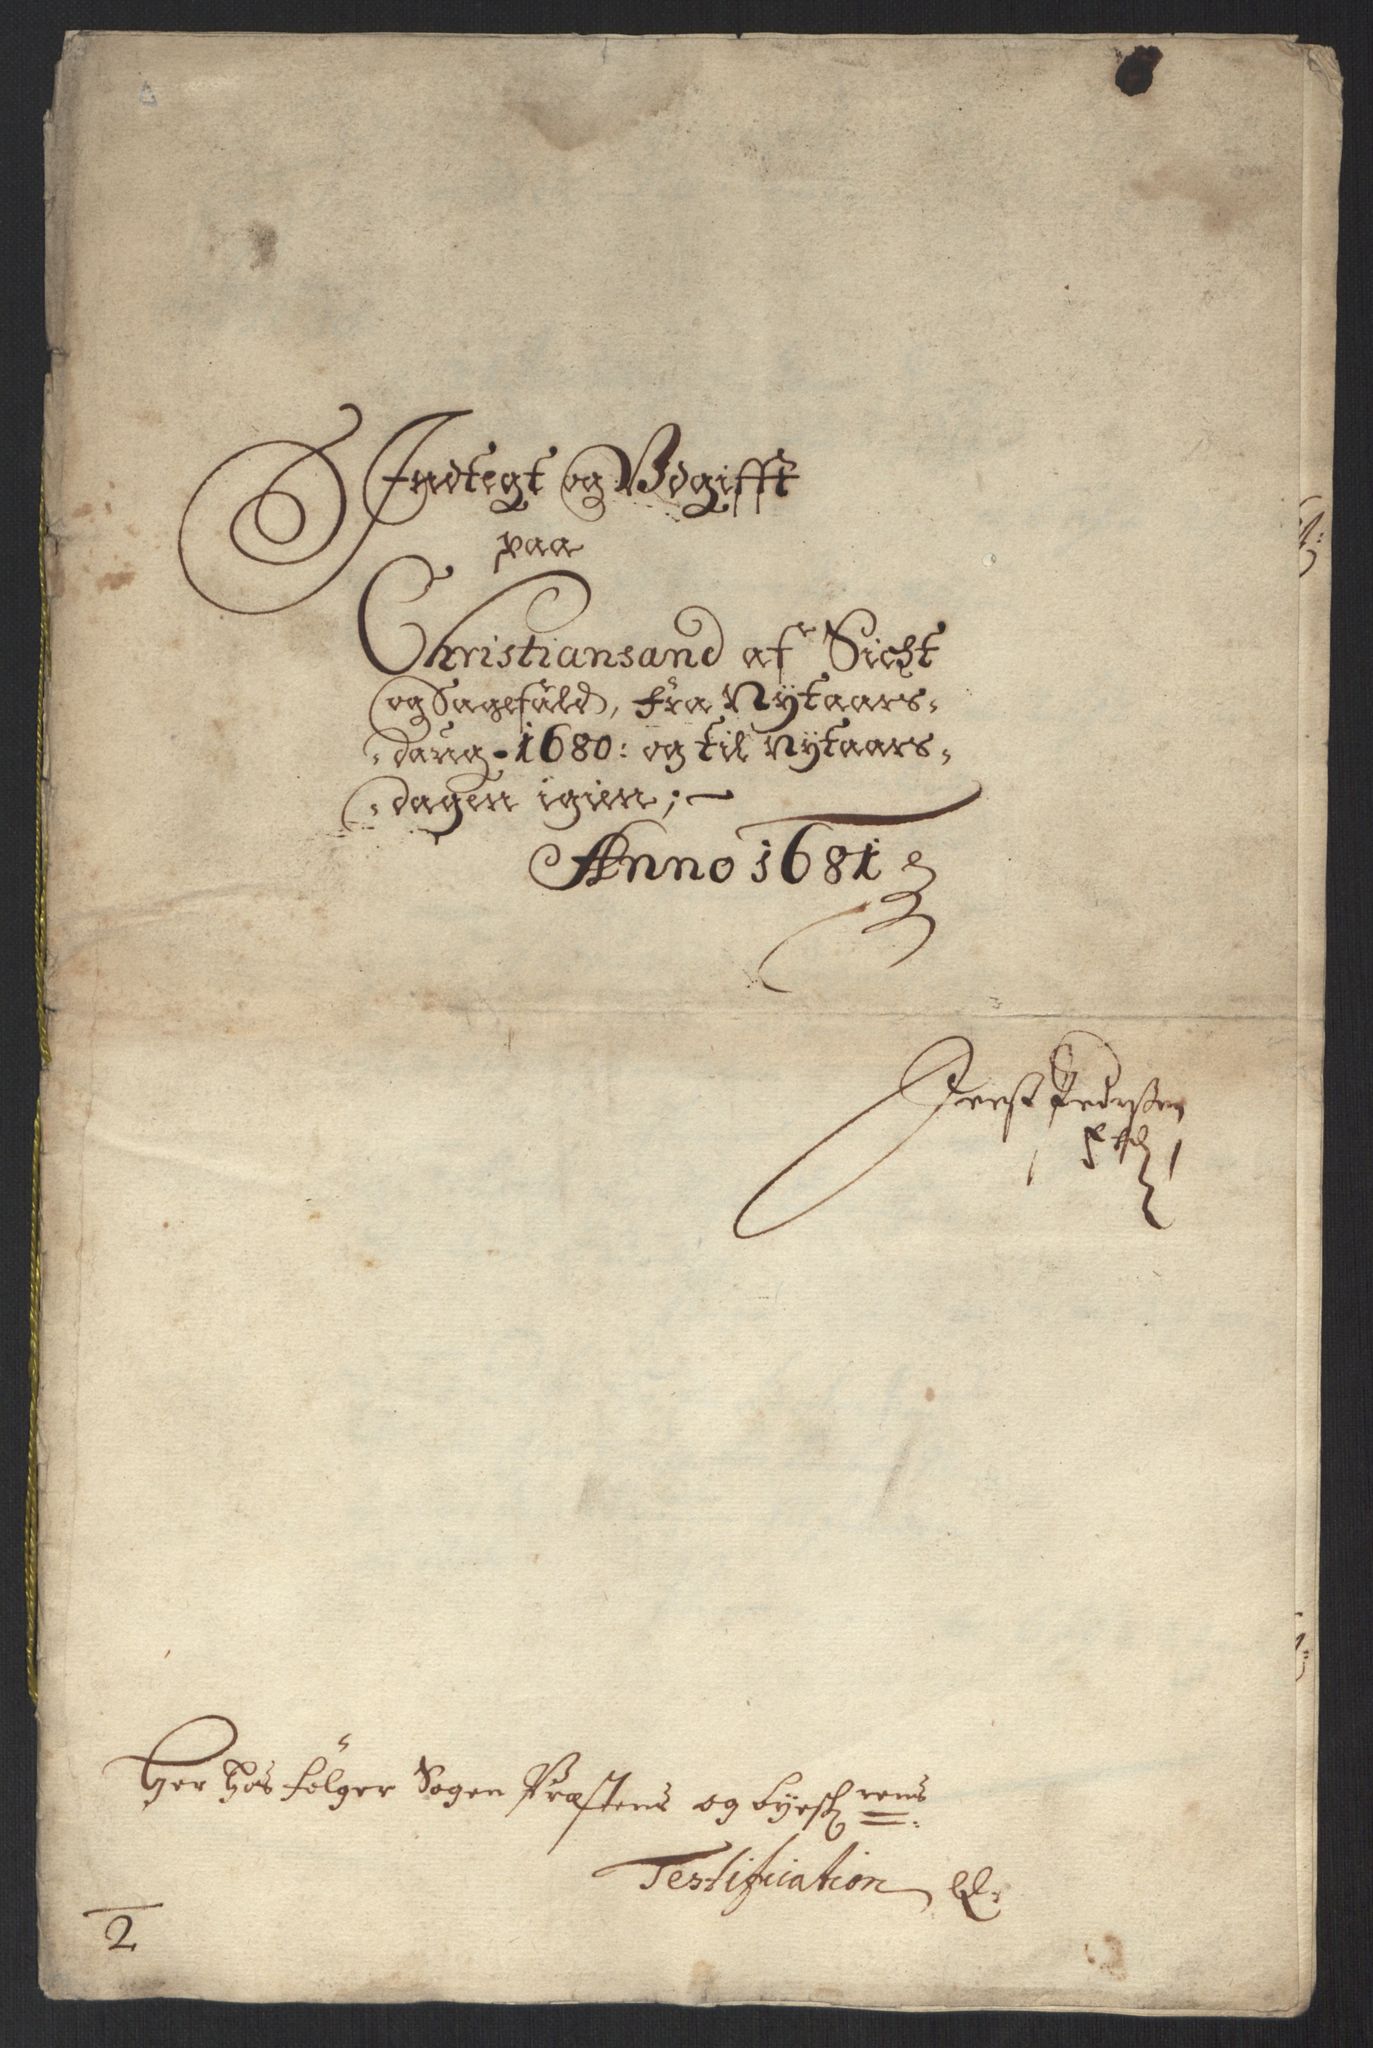 Indtegt og Vdgifft
paa
Christiansand af Sicht
og Sagefald, fra Nÿtaars-
daug 1680: og til Nÿtaars-
dagen igien;
Anno 1681
Pedersen
Her hos følger Sogen Præstens og byesch rens
Testification
2